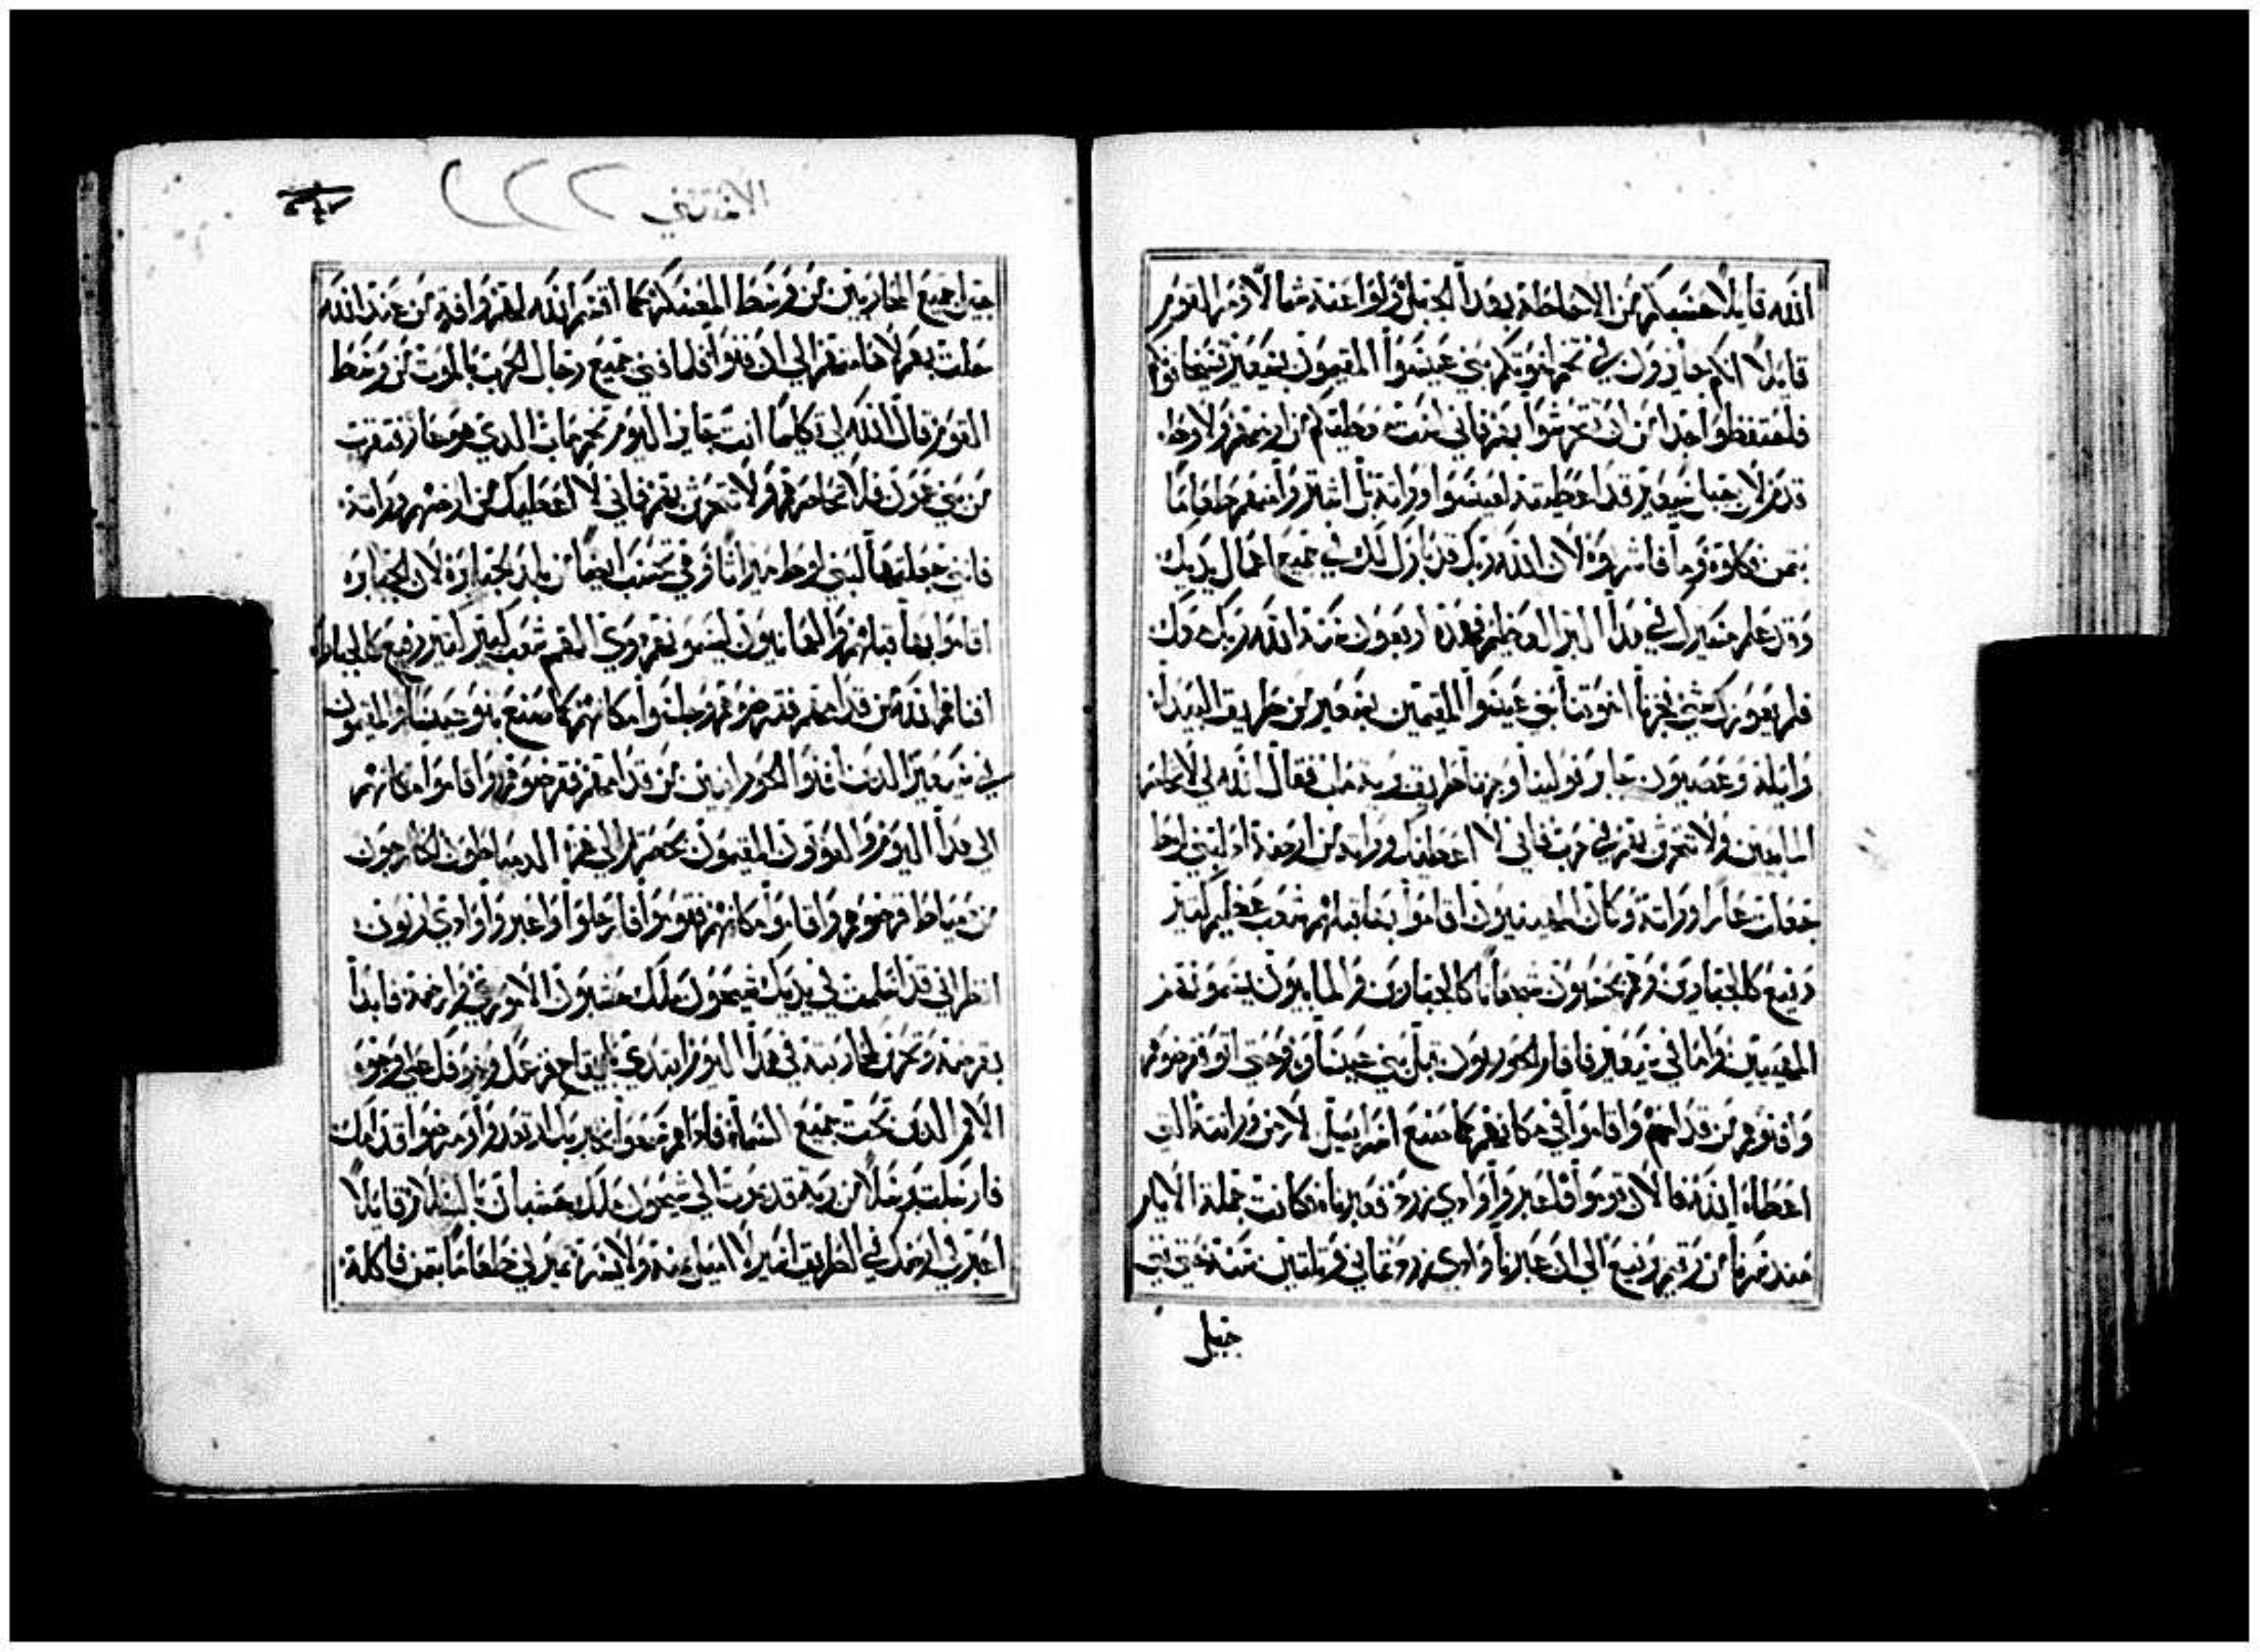 الله قايلا حسبكم من الاحاطة بهدا الجبل ولوا عنه شمالا ومر القوم
قايلا انكم جايزون في تخم اخوتكم بني عيسوا المقيمون بسعير فسيخافونكم
فاحتفظوا جدا من ان تتحرشوا بهم فاني لست معطيكم من ارضهم ولا وطا
قدم لان جبل سعير قد اعطيته لعيسوا وراتة بل اشتروا منهم طعاما
بثمن فكلوه وما فاشربوه لان الله ربك قد بارك لك في جميع اعمال يديك
وقد علم مسيرك في هدا البر العظيم فهده اربعون سنة الله ربك معك
فلم يعوزك شي فجزنا اخوتنا بني عيسوا المقيمين بسعير من طريق البيدا
وايلة وعصيون جابر فولينا وجزنا طريق برية ماب فقال الله لي لا تحاصر
الماابيين ولا تتحرش بهم في حرب فاني لا اعطيك وراتة من ارضه اد لبني لوط
جعلت عار وراتة وكان الهيبيون اقاموا بها قبلهم شعب عظيم كثير
رفيع كالجبارين وهم يحسبون شجعانا كالجبارين والماابيون يسمونهم
الهيبيين واما في سعير فاقام الحوريون قبل بني عيسا وبنو عيسى قرضوهم
وافنوهم من قدامهم واقاموا في مكانهم كما صنع اسراييل لارض وراتته التي
اعطاه الله فالان قوموا فاعبروا وادي زرد فعبرناه وكانت جملة الايام
مند سرنا من رقيم برنيع الى ان عبرنا وادي زرد ثماني وتلتين سنة حتى فني
جيل
الاستتني ٢٢٢
جيل جميع المحاربين من وسط المعسكر كما اقسم الله لهم وافة من عند الله
حلت بهم لاهامتهم الى ان فنوا فلما فني جميع رجال الحرب بالموت من وسط
القوم قال الله لي تكليما انت جايز اليوم تخم ماب الدي هو عار فتقرب
من بني عمون فلا تحاصرهم ولا تتحرش بهم فاني لا اعطيك من ارضهم وراتة
فاني جعلتها لبني لوط ميراتا وهي تحسب ايضا من بلد الجبابرة لان الجبابرة
اقاموا بها قبلهم والعمانيون يسمونهم دوي الهمم شعب كبير كتير رفيع كالجبابرة
افناهم الله من قدامهم فقرضوهم وجلسوا مكانهم كما صنع بنو عيسا المقيمون
في سعير الدين افنوا الحورانيين من قدامهم فقرضوهم واقاموا مكانهم
الى هدا اليوم والعويون المقيمون بحصرتم الى غزة الدمياطيون الخارجون
من دمياط قرضوهم واقاموا مكانهم فقوموا فارحلوا واعبروا وادي ارنون
انظر اني قد اسلمت في يديك سيحون ملك حسبون الاموري وارضه فابدا
بقرضه وتحرش لمحاربته في هدا اليوم ابتدي بايقاع فزعك وخوفك على وجوه
الامم الدين تحت جميع السماء فادا هم سمعوا خبرك ارتعدوا ومرضوا قدامك
فارسلت رسلا من برية قديموت الى سيحون ملك حسبان بالسلام قايلا
اعبر في ارضك في الطريق اسير لا اميل يمنة ولا يسرة تميرني طعاما بثمن فاكله